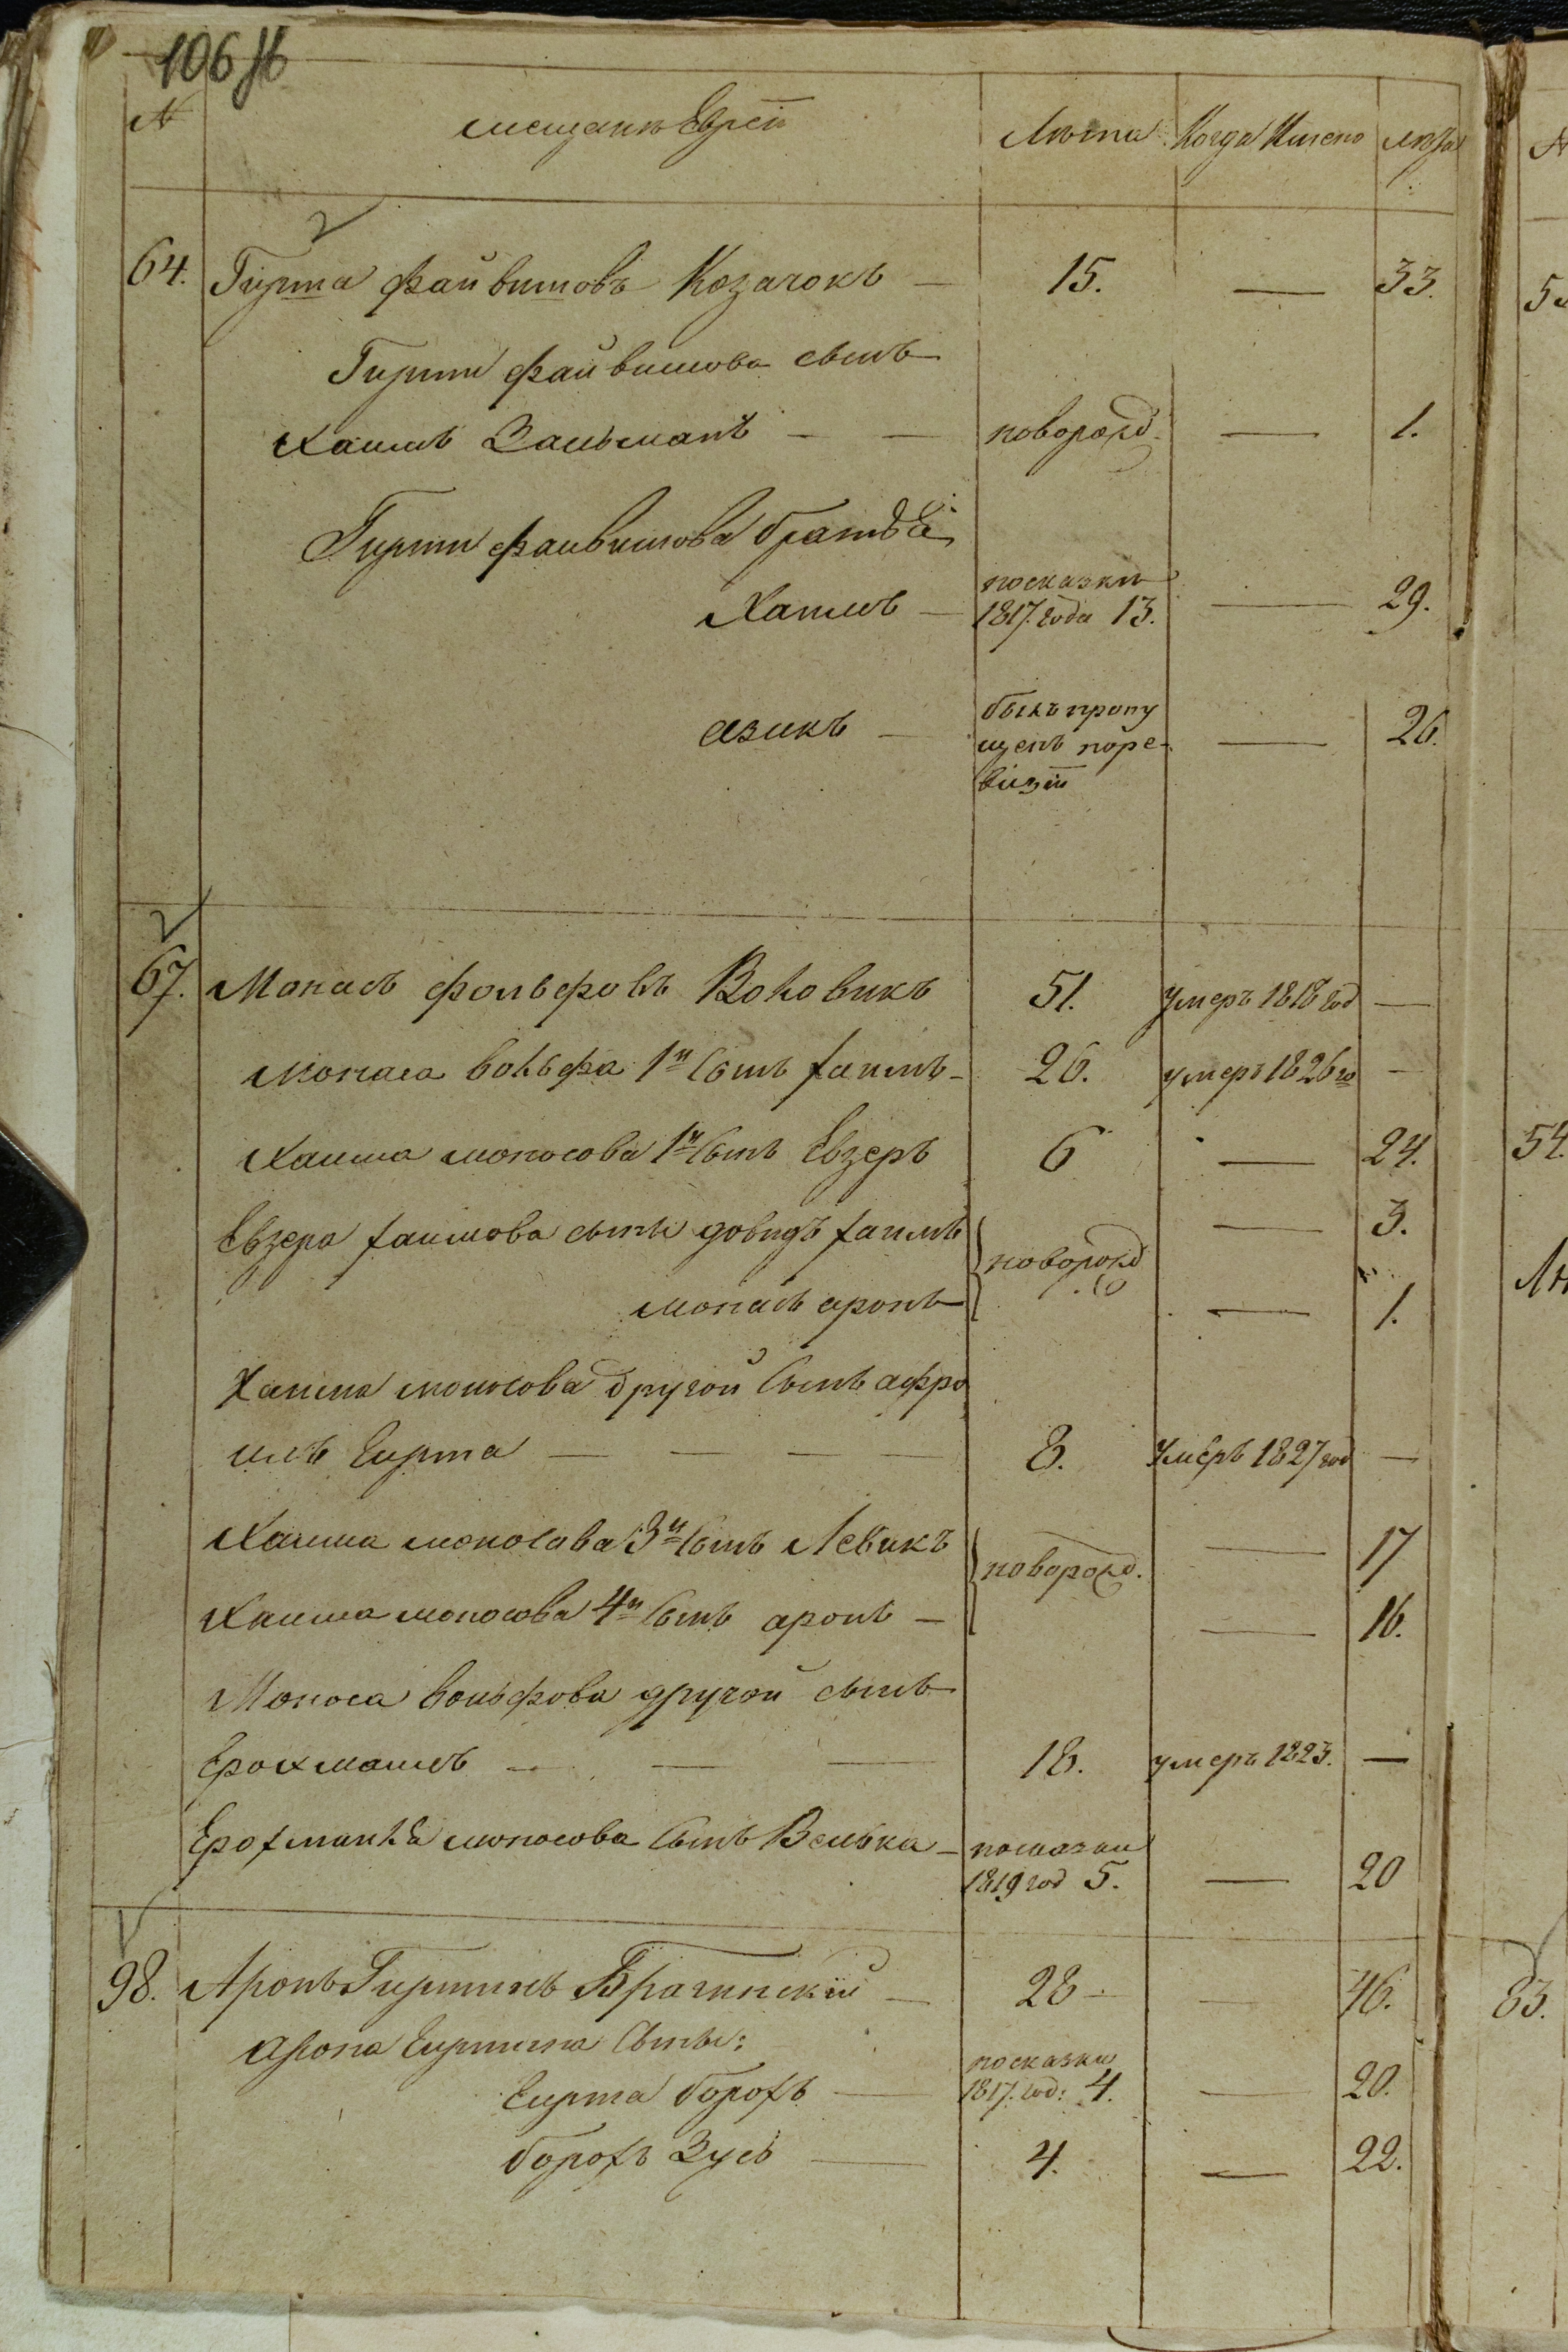 106 об
№ мещане Евреи Лѣта Когда Именно лѣта
64. Гирша Файвишовъ Козачокъ — 15. — 33.
Гирши файвишова сынъ
Хаимъ Зальманъ — — новорожд. — 1.
Гирши файвишова братьѣ:
посказки
Хаимъ — 1817. года 13. — 29.
былъ пропу
азикъ — щенъ поре- — 26.
визіи
67. Монасъ фольфовъ Воловикъ 51. умеръ 1818 год —
Монаса вольфа 1й Сынъ хаимъ — 26. умеръ 1826 го —
Хаима моносова 1й Сынъ Евзеръ 6 — 24.
Евзера хаимова сыны довидъ хаимъ — 3.
новорожд
монасъ аронъ — 1.
Хаима моносова другой Сынъ афро
имъ Гирша — — — — 8. Умеръ 1827 год —
Хаима моносова 3й Сынъ Левикъ — 17
новорожд.
Хаима моносова 4й Сынъ аронъ — — 16.
Моноса вольфова другой сынъ
Ерохманъ — — — 18. умеръ 1823. —
Ерохманѣа моносова Сынъ Велька — посказки
1819 год 5. — 20
98. Аронъ Гиршинъ Брагинскій — 28 — — 46.
арона Гиршина Сыны:
посказки
Гирша борохъ — 1817. год: 4. — 20.
борохъ Зусь — 4. — 22.